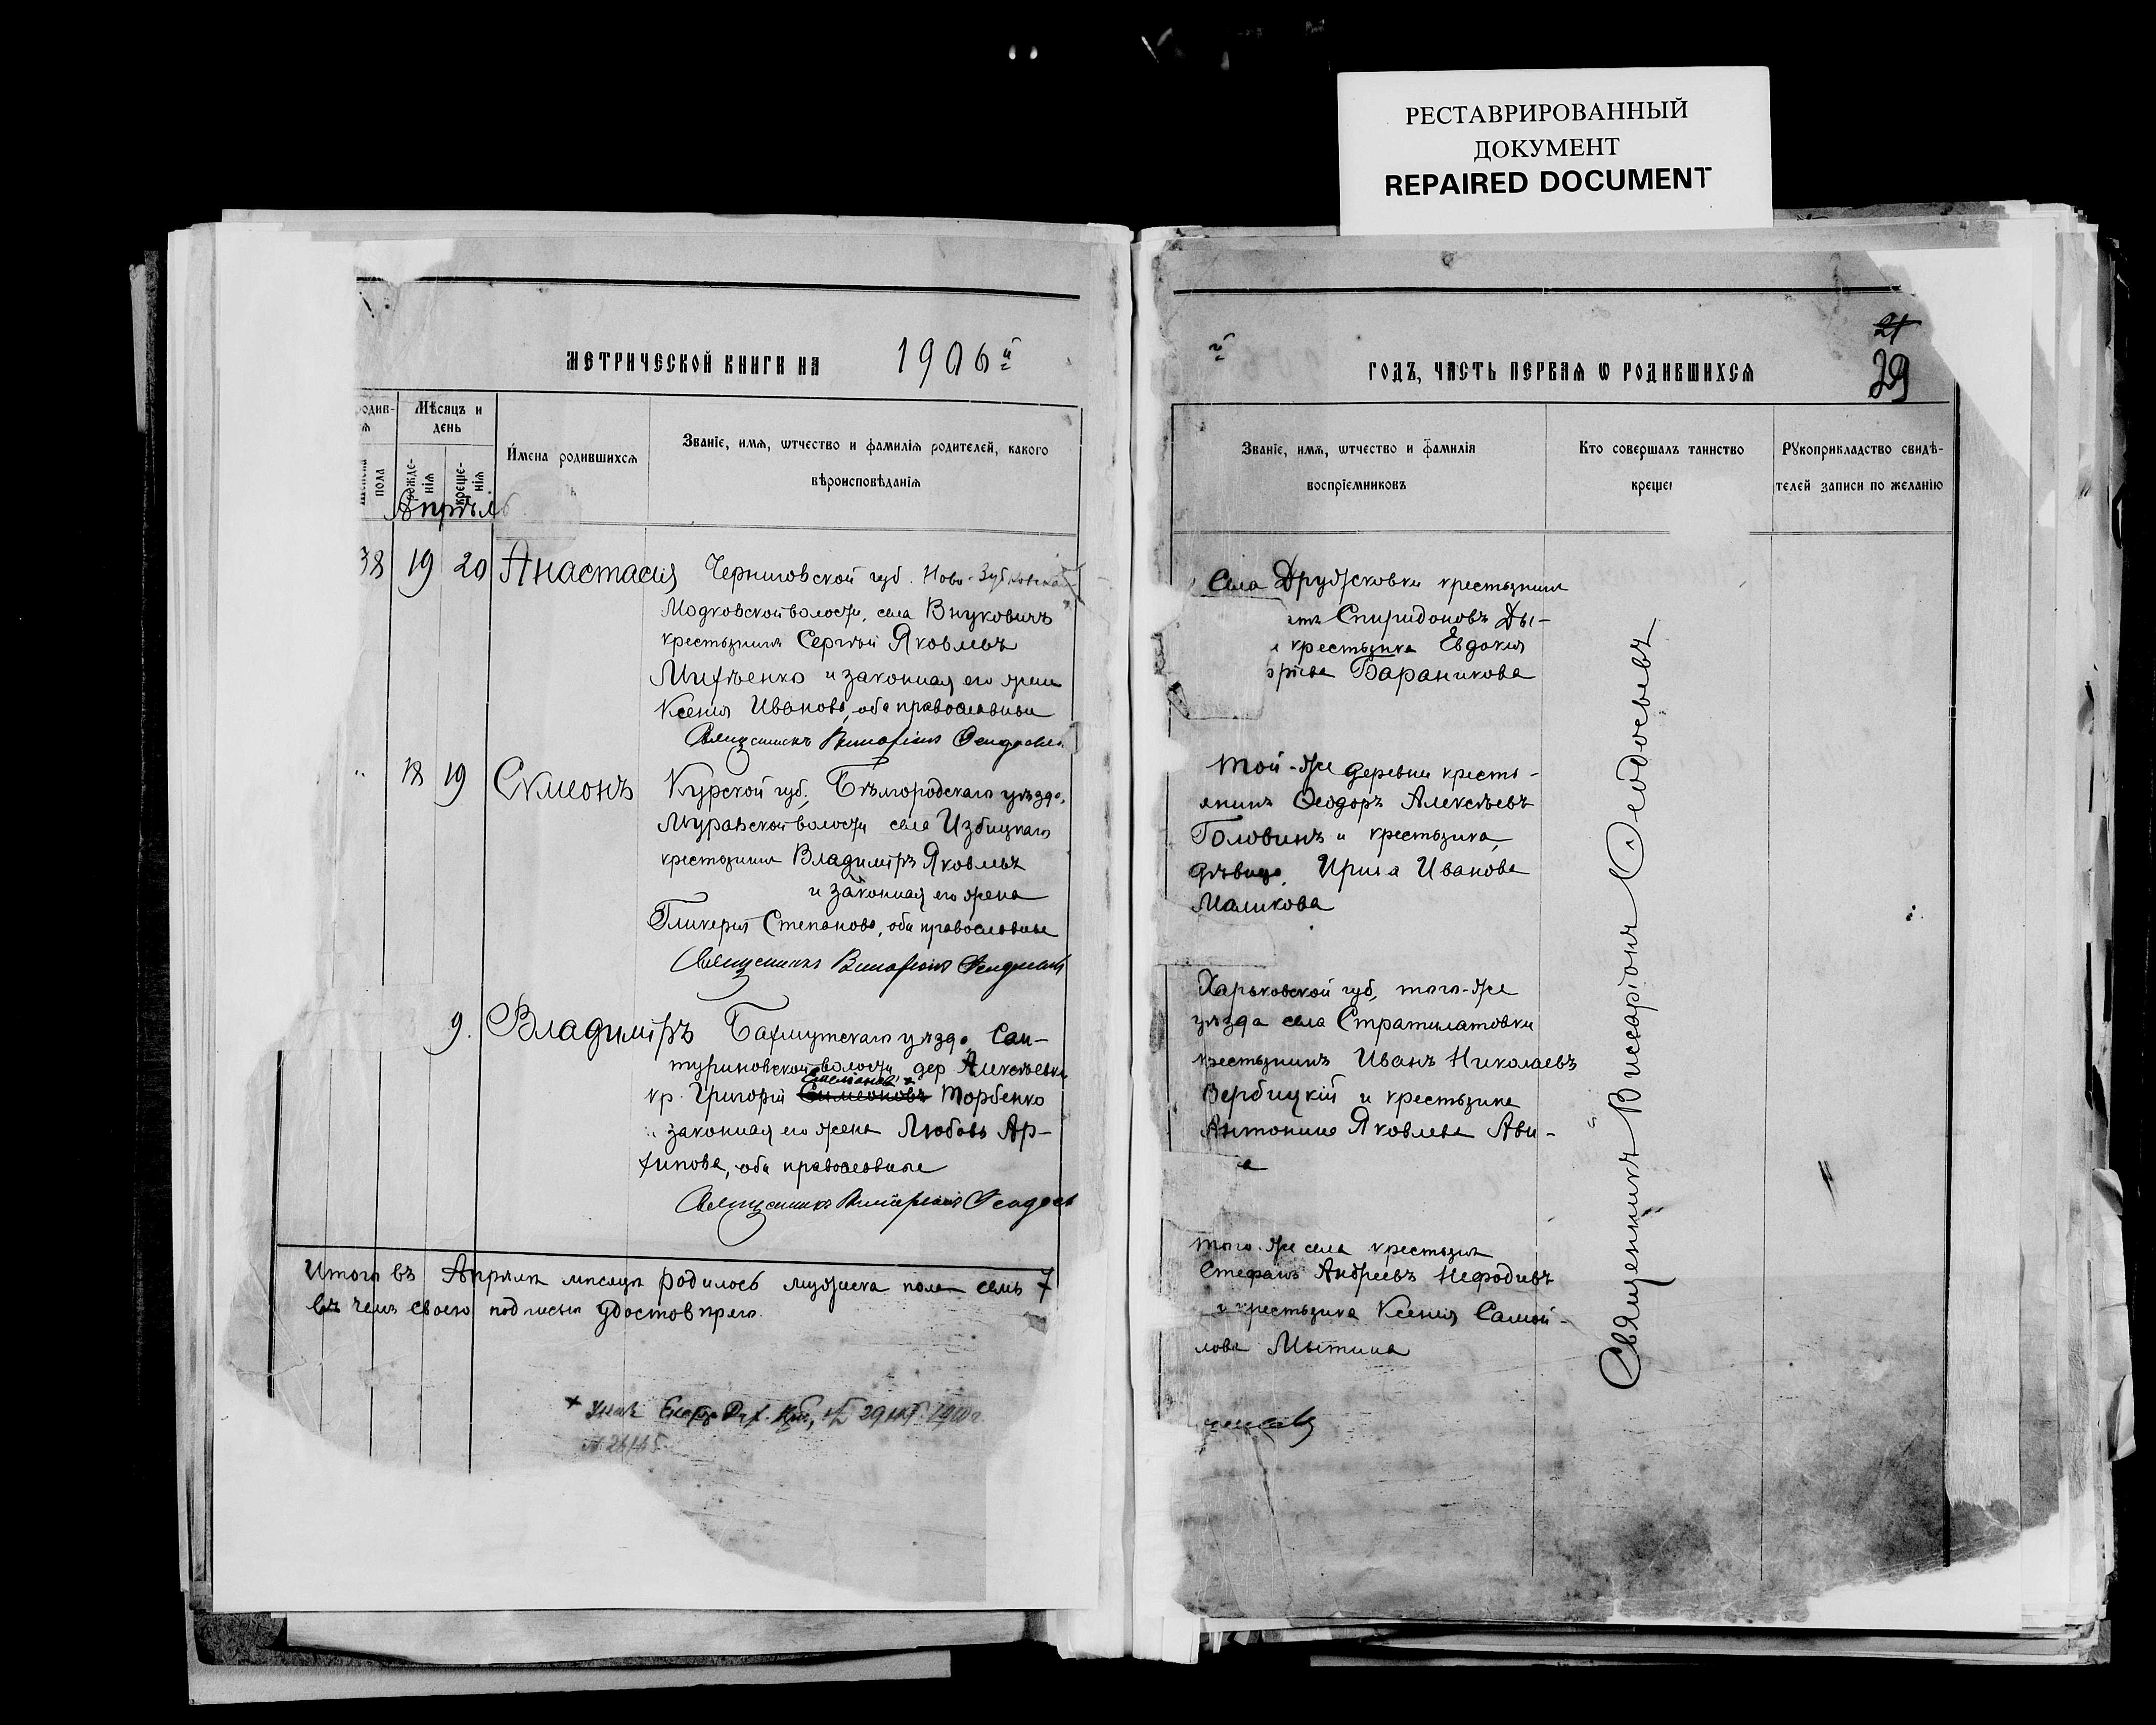 РЕСТАВРИРОВАННЫЙ
ДОКУМЕНТ
REPAIRED DOCUMENT
МЕТРИЧЕСКОЙ КНИГИ НА 1906й
одив-
Мѣсяцъ и
день
Имена родившихся
Званіе, имя, ѿтчество и фамилія родителей, какого
вѣроисповѣданія
пола
рожде-
нія
креще-
нія
Апрѣль
38 19 20 Анастасія Черниговской губ. Ново-Зубковска
волости, села Внуковичъ
крестьянинъ Сергѣй Яковлевъ
и законная его жена
Ксенія Иванова, оба православные
Священникъ Виссаріонъ Феодосьев
18 19 Симеонъ Курской губ., Бѣлгородскаго уѣзда,
Муравской волости села Избицкаго
крестьянинъ Владиміръ Яковлевъ
и законная его жена
Гликерія Степанова, оба православные
Священникъ Виссаріонъ Феодосьевъ
9. Владиміръ Бахмутскаго уѣзда, Сан-
туриновской волости дер Алексѣевки
Степановъ
кр. Григорій Симеоновъ Торбенко
законная его жена Любовь Ар-
хипова, оба православные
Священникъ Виссаріонъ Феодось
Итого въ Апрѣлѣ мѣсяцѣ родилось мужеска пола семь 7
въ чемъ своею подписью удостовѣряю.
29
№ 26165
й
ГОДЪ, ЧАСТЬ ПЕРВАЯ Ѡ РОДИВШИХСЯ
21
29
Званіе, имя, ѿтчество и фамилія
воспріемниковъ
Кто совершалъ таинство
креще
Рукоприкладство свидѣ-
телей записи по желанію
Села Дружковки крестьянинъ
Спиридоновъ Ды-
крестьянка Евдокія
Бараникова
той-же деревни кресть-
янинъ Феодоръ Алексѣевъ
Головинъ и крестьянка,
дѣвица, Ирина Иванова
Маликова
Харьковской губ, того-же
уѣзда села Стратилатовки
крестьянинъ Иванъ Николаевъ
Вербицкій и крестьянка
Антонина Яковлева Ави-
а
того-же села крестьян
Стефанъ Андреевъ Нефодьевъ
и крестьянка Ксенія Самой-
лова Мытина
Священникъ Виссаріонъ Феодосьевъ